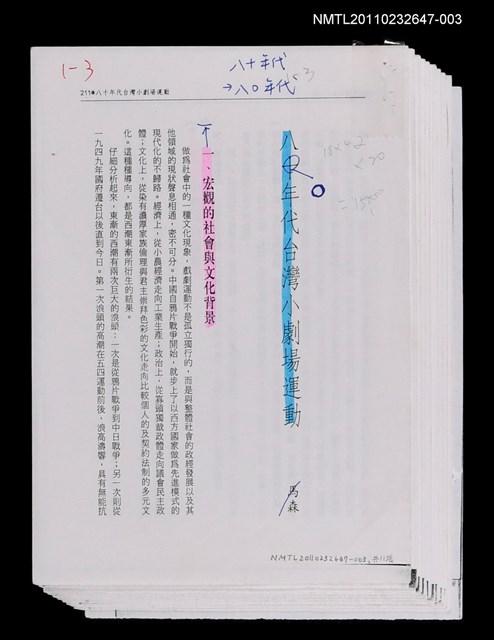 NMTL20110232647-003
1-3
八十年代
→八〇年代
211●八十年代台灣小劇場運動
八〇年代台灣小劇場運動
馬森
一、宏觀的社會與文化背景
做爲社會中的一種文化現象，戲劇運動不是孤立獨行的，而是與整體社會的政經發展以及其
他領域的現狀聲息相通，密不可分。中國自鴉片戰爭開始，就步上了以西方國家做爲先進模式的
現代化的不歸路。經濟上，從小農經濟走向工業生產；政治上，從寡頭獨裁政體走向議會民主政
體；文化上，從染有濃厚家族倫理與君主崇拜色彩的文化走向比較個人的及契約法制的多元文
化。這種種導向，都是西潮東漸所衍生的結果。
仔細分析起來，東漸的西潮有兩次巨大的浪頭：一次是從鴉片戰爭到中日戰爭；另一次則從
一九四九年國府遷台以後直到今日。第一次浪頭的高潮在五四運動前後，浪高濤響，具有無能抗
NMTL20110232647-003,共11張